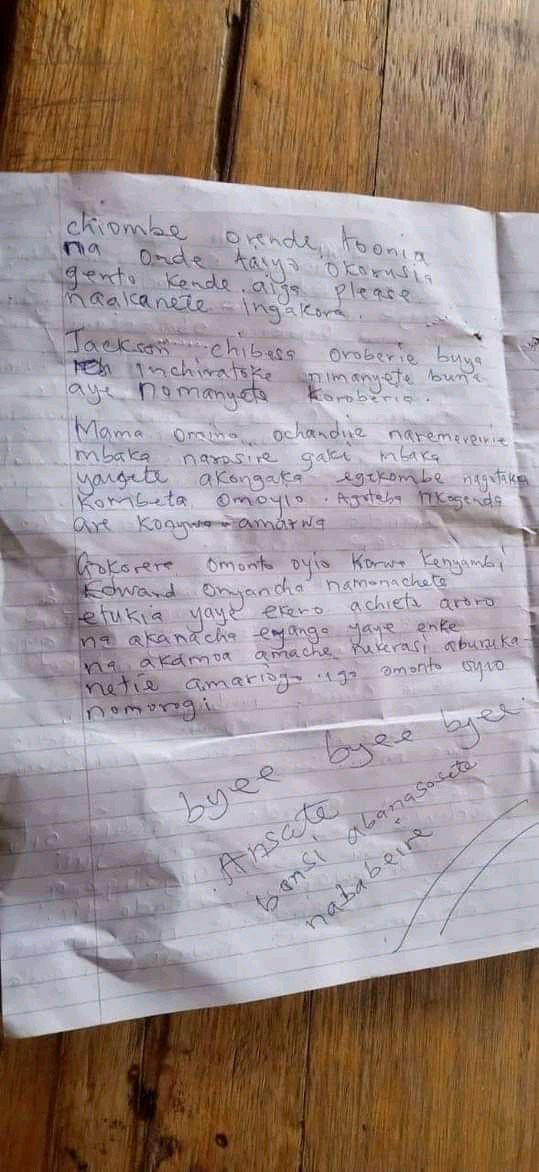 chiombe orende, toonia
na onde taiyo okorusia
gento kende aiga please
naakanete ingakora.
Jackson chibesa oroberie buya
inchiratoke nimanyete buna
aye nomanyete koroberia.
Mama omino ochandire naremereirie
mbaka narasire gaki mbaka
yaigete akongaka egekombe nagotaka
kombeta omoyio. Agoteba nkogenda
are konywa amarwa
Gokorere omonto oyio korwa Kenyambi
Edward Onyancha namonachete
etukia yaye ekero achiete aroro
na akanacha eyanga yaye enke
na akamoa amache nakerasi aburuka
netie amariogo igo omonto oyio
nomorogi
byee byee byee.
Ansate
bonsi abanasosete
nababeire